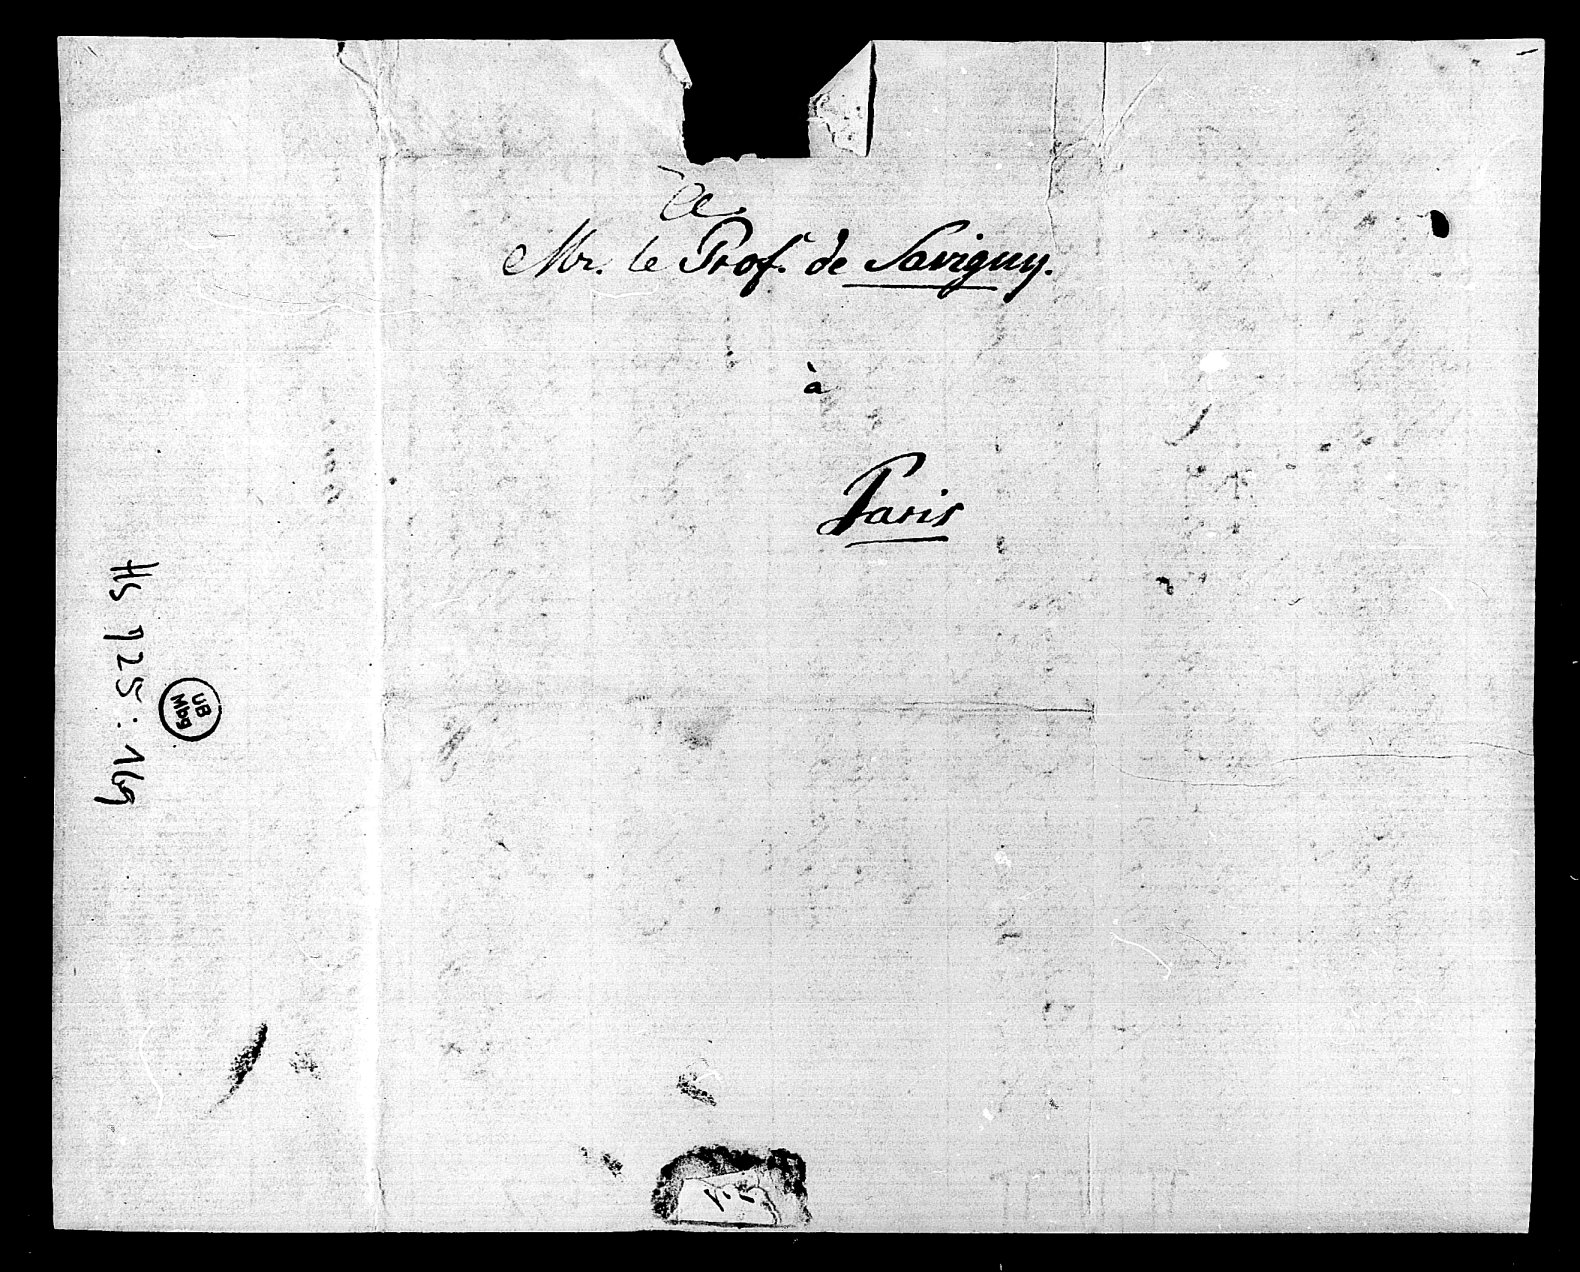 à
Mr. le Prof. de Savigny.
à
Paris
Hs 725 : 169
UB
Mbg